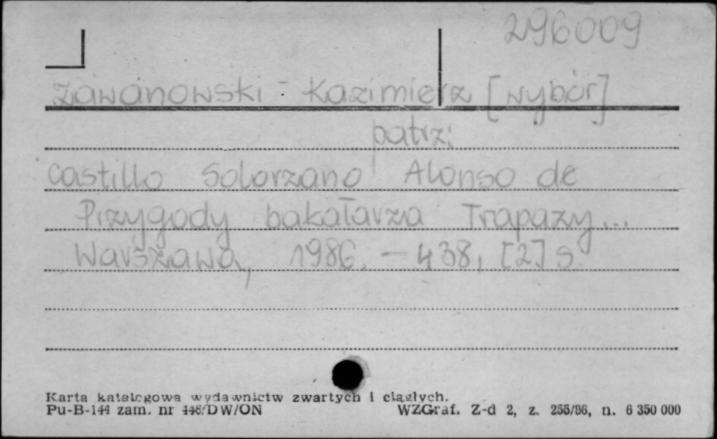 296009
Zawanowski - Kazimierz [wybór]
patrz:
Castillo Solorzano Alonso de
Przygody bakałarza Trapazy...
Warszawa, 1986. – 438, [2] s
Karta katalogowa wydawnictw zwartych i ciągłych.
Pu-B-144 zam. nr 446/DW/ON WZGraf. Z-d 2, z. 255/86, n. 6 350 000